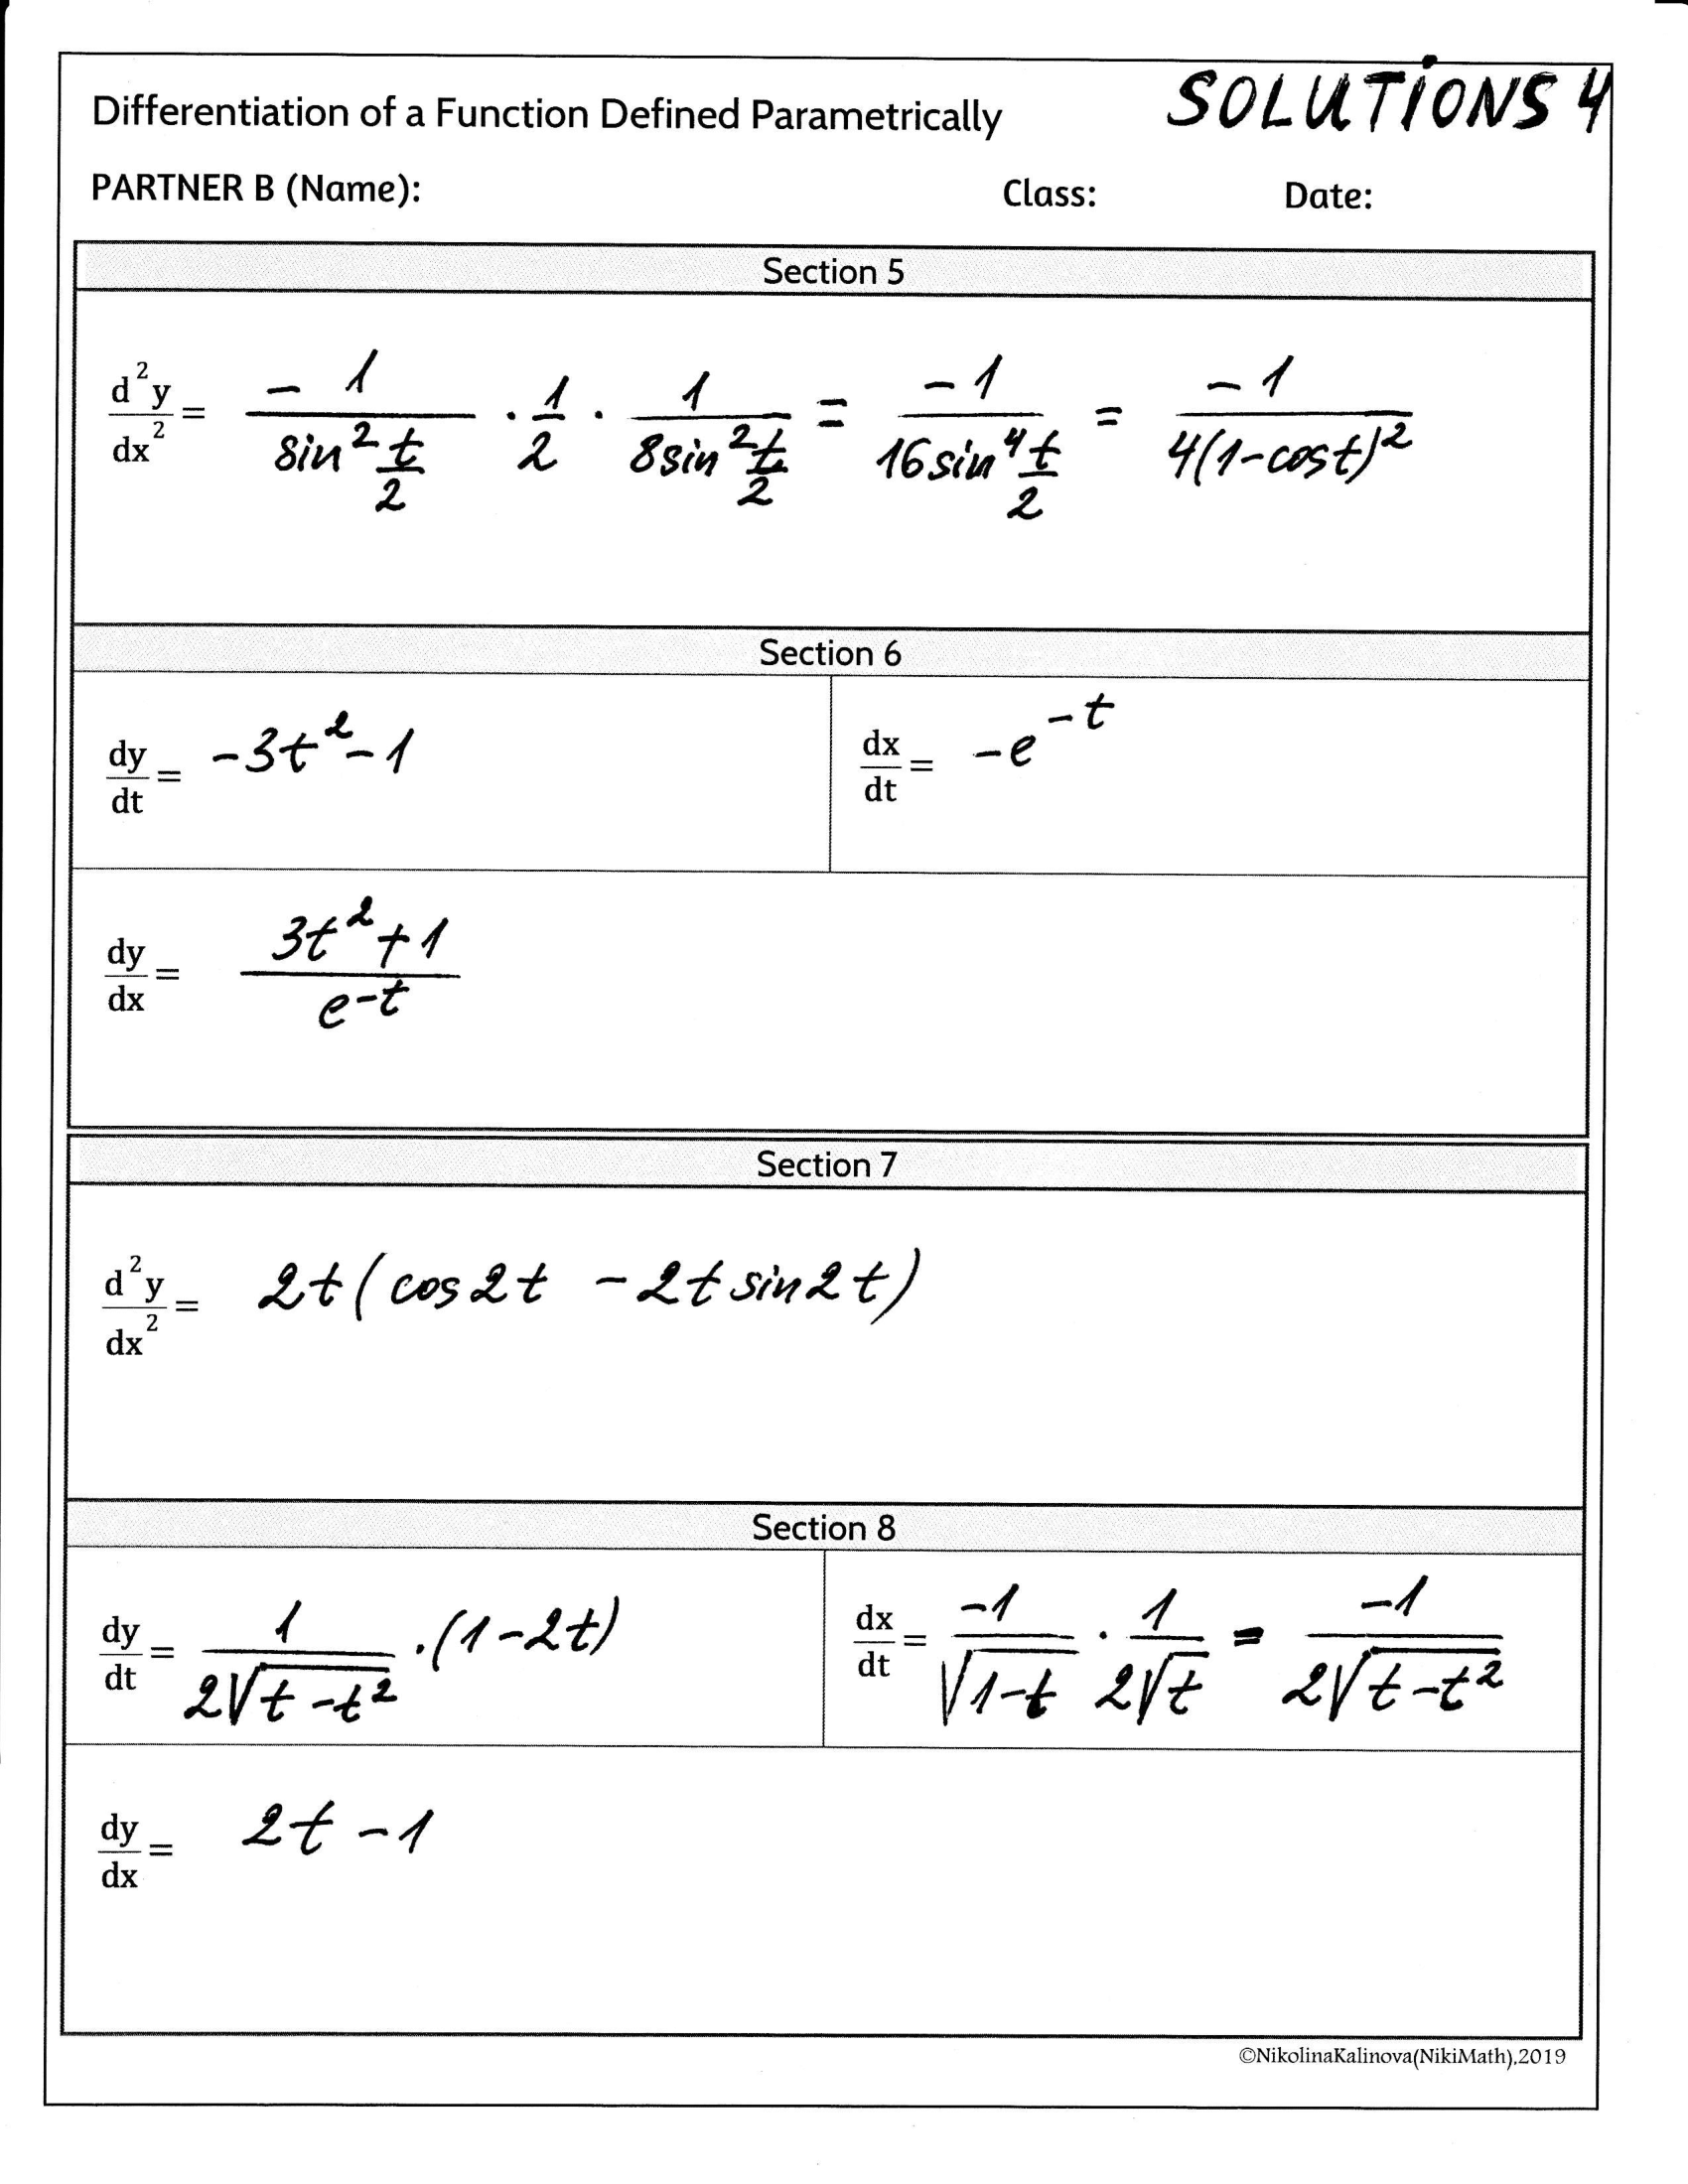 Differentiation of a Function Defined Parametrically SOLUTIONS 4
PARTNER B (Name): Class: Date:
Section 5
d²y/dx² = -1/(sin² t/2) · 1/2 · 1/(8sin² t/2) = -1/(16sin⁴ t/2) = -1/(4(1-cost)²)
Section 6
dy/dt = -3t²-1 dx/dt = -e^(-t)
dy/dx = (3t²+1)/(e^(-t))
Section 7
d²y/dx² = 2t(cos2t - 2tsin2t)
Section 8
dy/dt = 1/(2√(t-t²)) · (1-2t) dx/dt = -1/√(1-t) · 1/(2√t) = -1/(2√(t-t²))
dy/dx = 2t-1
©NikolinaKalinova(NikiMath),2019